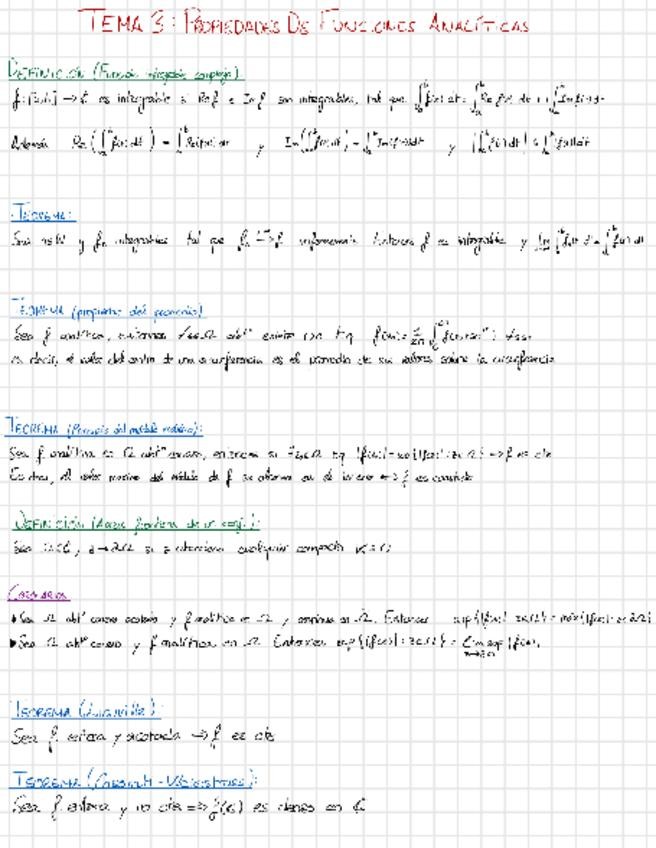 TEMA 3: PROPIEDADES DE FUNCIONES ANALÍTICAS
DEFINICIÓN (Función integrable compleja)
f:[a,b] → ℂ es integrable si Re f e Im f son integrables, tal que ∫_a^b f(t) dt = ∫_a^b Re f(t) dt + i ∫_a^b Im f(t) dt
Además Re(∫_a^b f(t) dt) = ∫_a^b Re f(t) dt y Im(∫_a^b f(t) dt) = ∫_a^b Im f(t) dt y |∫_a^b f(t) dt| ≤ ∫_a^b |f(t)| dt
TEOREMA:
Sea n∈ℕ y fₙ integrables tal que fₙ → f uniformemente. Entonces f es integrable y lim ∫_a^b fₙ(t) dt = ∫_a^b f(t) dt
TEOREMA (propiedad del promedio)
Sea f analítica, entonces
es decir, el valor del centro de una circunferencia es el promedio de sus valores sobre la circunferencia
TEOREMA (Principio del módulo máximo):
Sea f analítica en Ω abtº conexo, entonces si ∃z₀∈Ω tq |f(z₀)| = sup{|f(z)|: z∈Ω} => f es cte
Es decir, el valor máximo del módulo de f se alcanza en el interior <=> f es constante
DEFINICIÓN
Sea Ω⊂ℂ, z→∂Ω si z abandona cualquier compacto K⊂Ω
COROLARIO
Sea Ω abtº conexo acotado y f analítica en Ω y continua en Ω̄. Entonces sup{|f(z)|: z∈Ω} = máx{|f(z)|: z∈∂Ω}
Sea Ω abtº conexo y f analítica en Ω. Entonces sup{|f(z)|: z∈Ω} = lim sup_{z→∂Ω} |f(z)|.
TEOREMA (Liouville):
Sea f entera y acotada => f es cte
TEOREMA (Casorati-Weierstrass):
Sea f entera y no cte => f(ℂ) es denso en ℂ